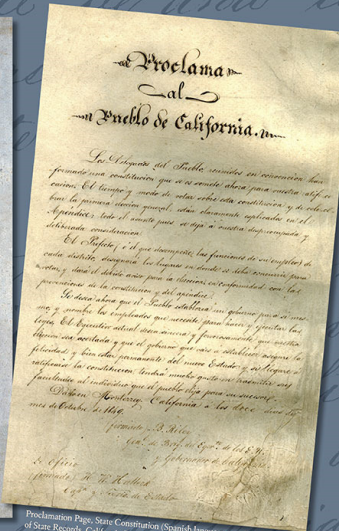 Proclama
al
Pueblo de California.
Los Delegados del Pueblo, reunidos en convencion han
formado una constitucion que se os somete ahora para vuestra ratifi-
cacion. El tiempo y modo de votar sobre esta constitucion, y de
la primera eleccion general, estan claramente esplicados en el
Apendice: todo el asunto pues se deja a vuestra
consideracion.
El Prefecto, ó el que desempeñe las funciones de su empleo, de
cada distrito, designará los lugares en donde se debe para
votar, y dará el debido aviso para la eleccion, en conformidad con las
provisiones de la constitucion y del apendice.
ahora que el Pueblo establezca un gobierno para si mis-
mo, y nombre los empleados que necesite para hacer y ejecutar las
leyes. El Ejecutivo actual desea sincera y que vuestra
eleccion sea acertada, y que el gobierno que vais á establecer asegure la
felicidad y bien estar permanente del nuevo Estado y se llegare á
ratificar la constitucion tendrá mucho gusto en transmitir sus
facultades al individuo que el pueblo elija para su sucesor.
Monterey, California á los doce dias del
mes de Octubre de 1849.
(firmado) B. Riley
Gen. de Brig. de los E. U.
y Gobernador de California.
De Oficio
(firmado) H. W. Halleck
y Secrio. de Estado.
Proclamation Page, State Constitution (Spanish
of State Records,